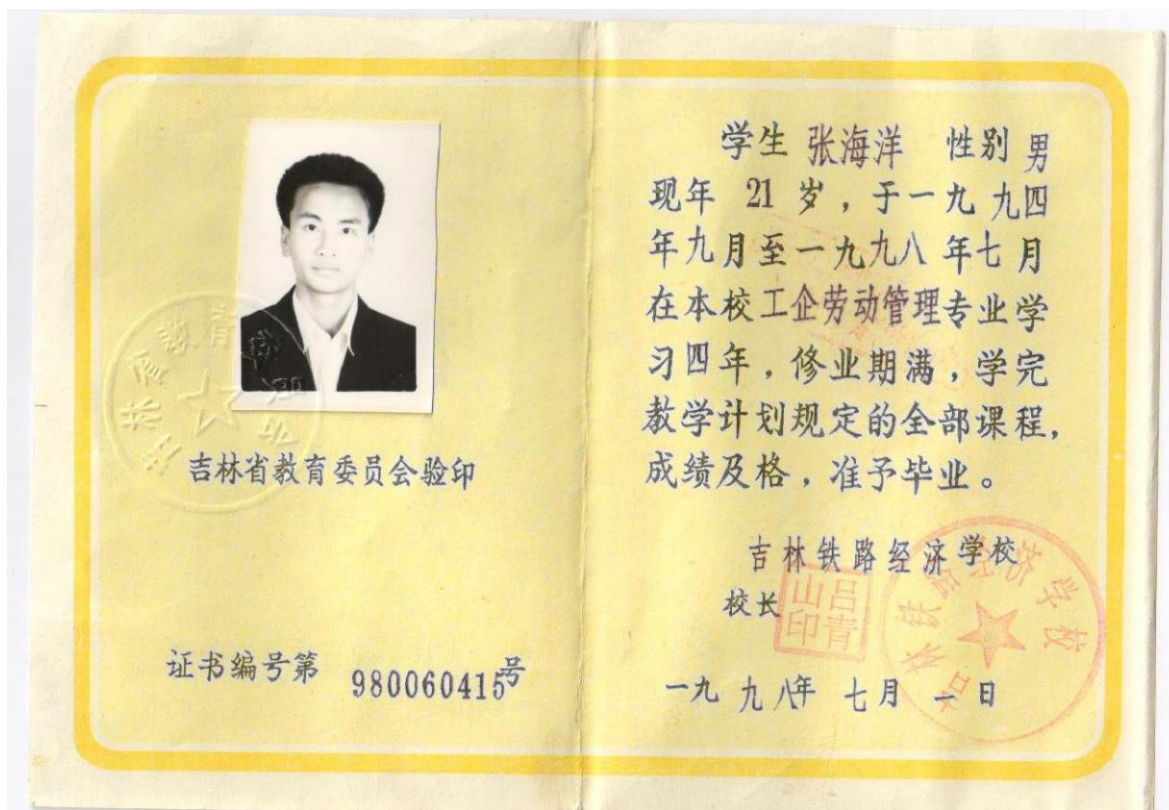 吉林省教育委员会验印
证书编号第 980060415号
学生 张海洋 性别 男
现年 21 岁，于一九九四
年九月至一九九八年七月
在本校工企劳动管理专业学
习四年，修业期满，学完
教学计划规定的全部课程，
成绩及格，准予毕业。
吉林铁路经济学校
校长
吕青山印
一九九八年 七月 一日
吉林铁路经济学校